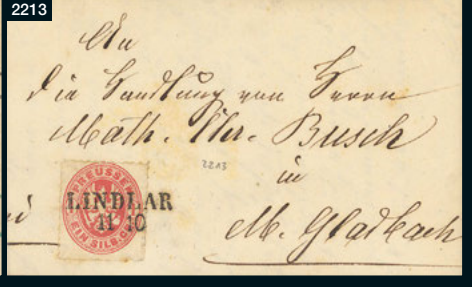 2213
An
die Handlung von Herrn
Math. Busch
2213
in
M. Gladbach
PREUSSEN
EIN SILB.GR.
LINDLAR
11 10